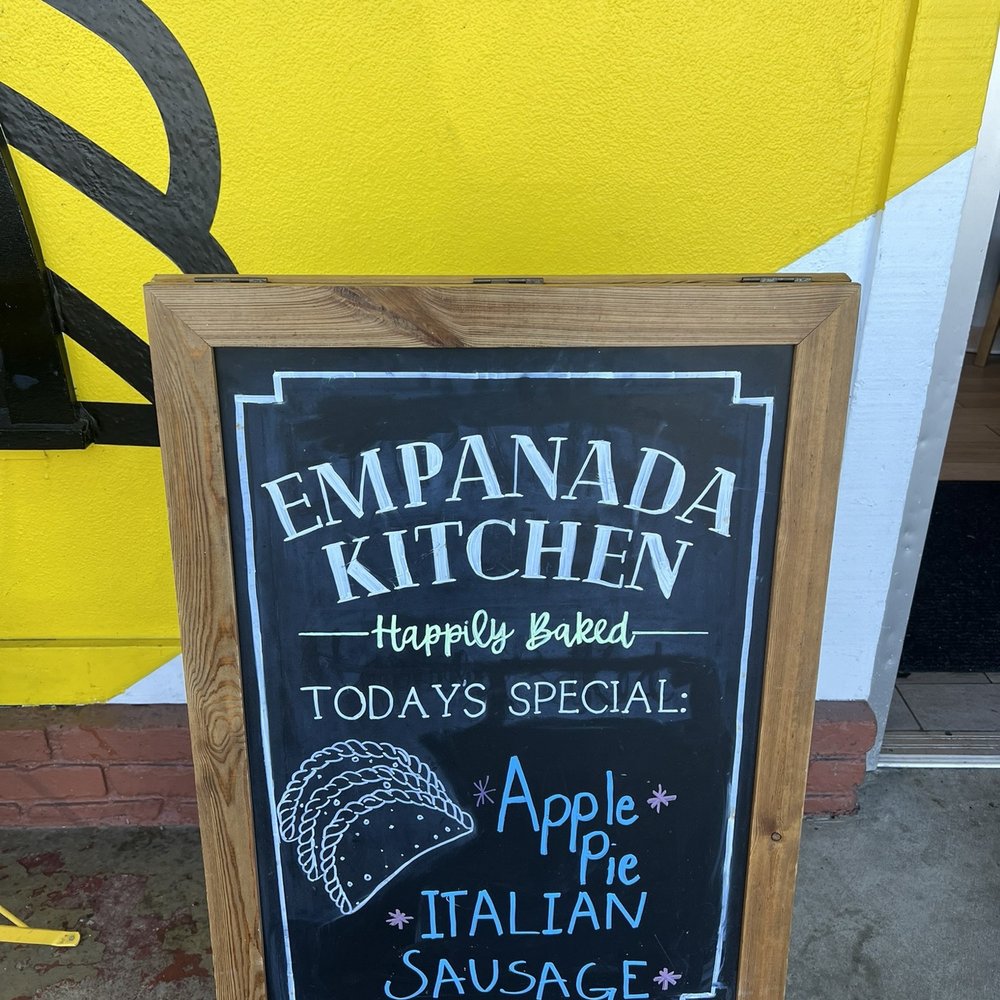 EMPANADA
KITCHEN
Happily Baked
TODAY'S SPECIAL:
Apple
Pie
ITALIAN
SAUSAGE